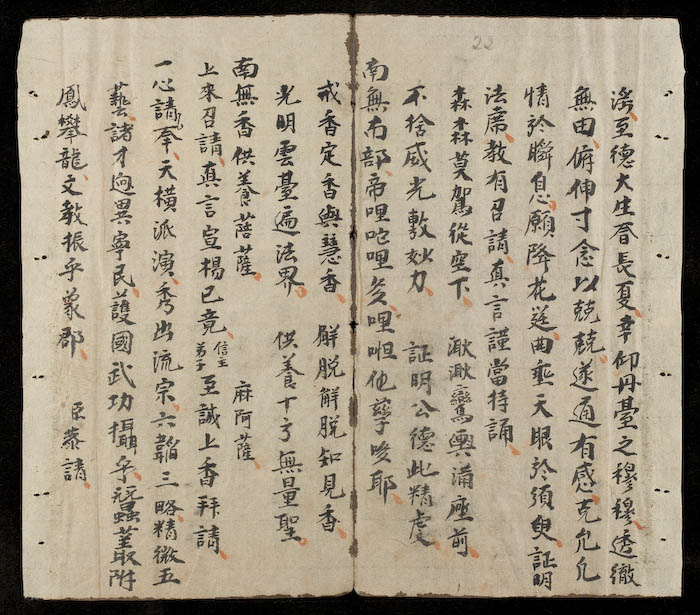 至德大生育長夏幸仰丹臺之穆穆透徹
無由俯伸寸念以兢兢遂通有感克允凢
情於瞬自心願降花莚曲垂天眼於須臾証明
法席教有召請真言謹當持誦
森森莫駕從空下 濈濈鸞輿滿座前
不捨威光敷妙力 証明公德此精虔
南無布部帝哩咜哩多哩怛他孽哆耶
戒香定香與慧香 解脱解脱知見香
光明雲臺遍法界 供養十方無量聖
南無香供養菩薩 麻阿薩
上來召請真言宣楊已竟 信主弟子 至誠上香拜請
一心請奉天橫派演秀出流宗六韜三略精微五
藝諸才逈異寧民護國武功攝乎蠶叢附
鳳攀龍文教振乎蒙郡 臣恭請
22